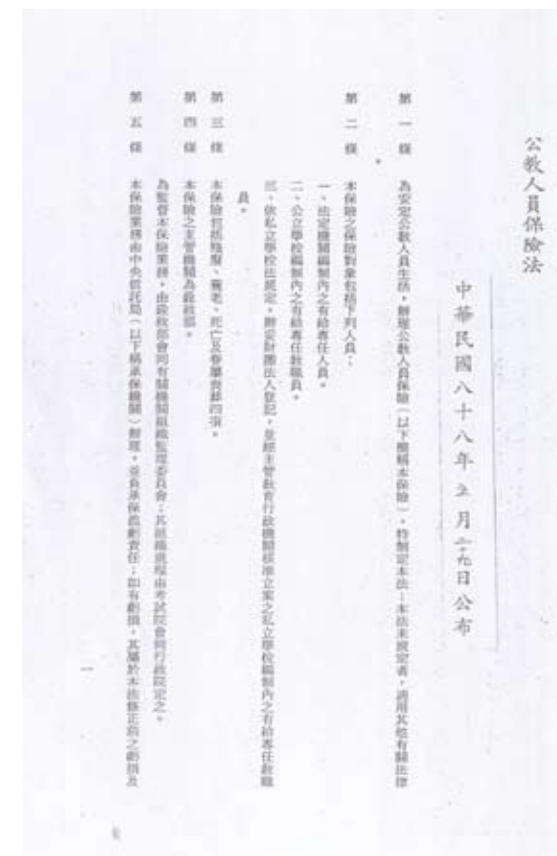 公教人員保險法
中華民國八十八年五月二十九日公布
第一條 為安定公教人員生活，辦理公教人員保險（以下簡稱本保險），特制定本法；本法未規定者，適用其他有關法律
第二條 本保險之保險對象包括下列人員：
一、法定機關編制內之有給專任人員。
二、公立學校編制內之有給專任教職員。
三、依私立學校法規定，辦妥財團法人登記，並經主管教育行政機關核准立案之私立學校編制內之有給專任教職
員。
第三條 本保險包括殘廢、養老、死亡及眷屬喪葬四項。
第四條 本保險之主管機關為銓敘部。
為監督本保險業務，由銓敘部會同有關機關組織監理委員會；其組織規程由考試院會同行政院定之。
第五條 本保險業務由中央信託局（以下稱承保機關）辦理，並負承保盈虧責任；如有虧損，其屬於本法修正前之虧損及
一